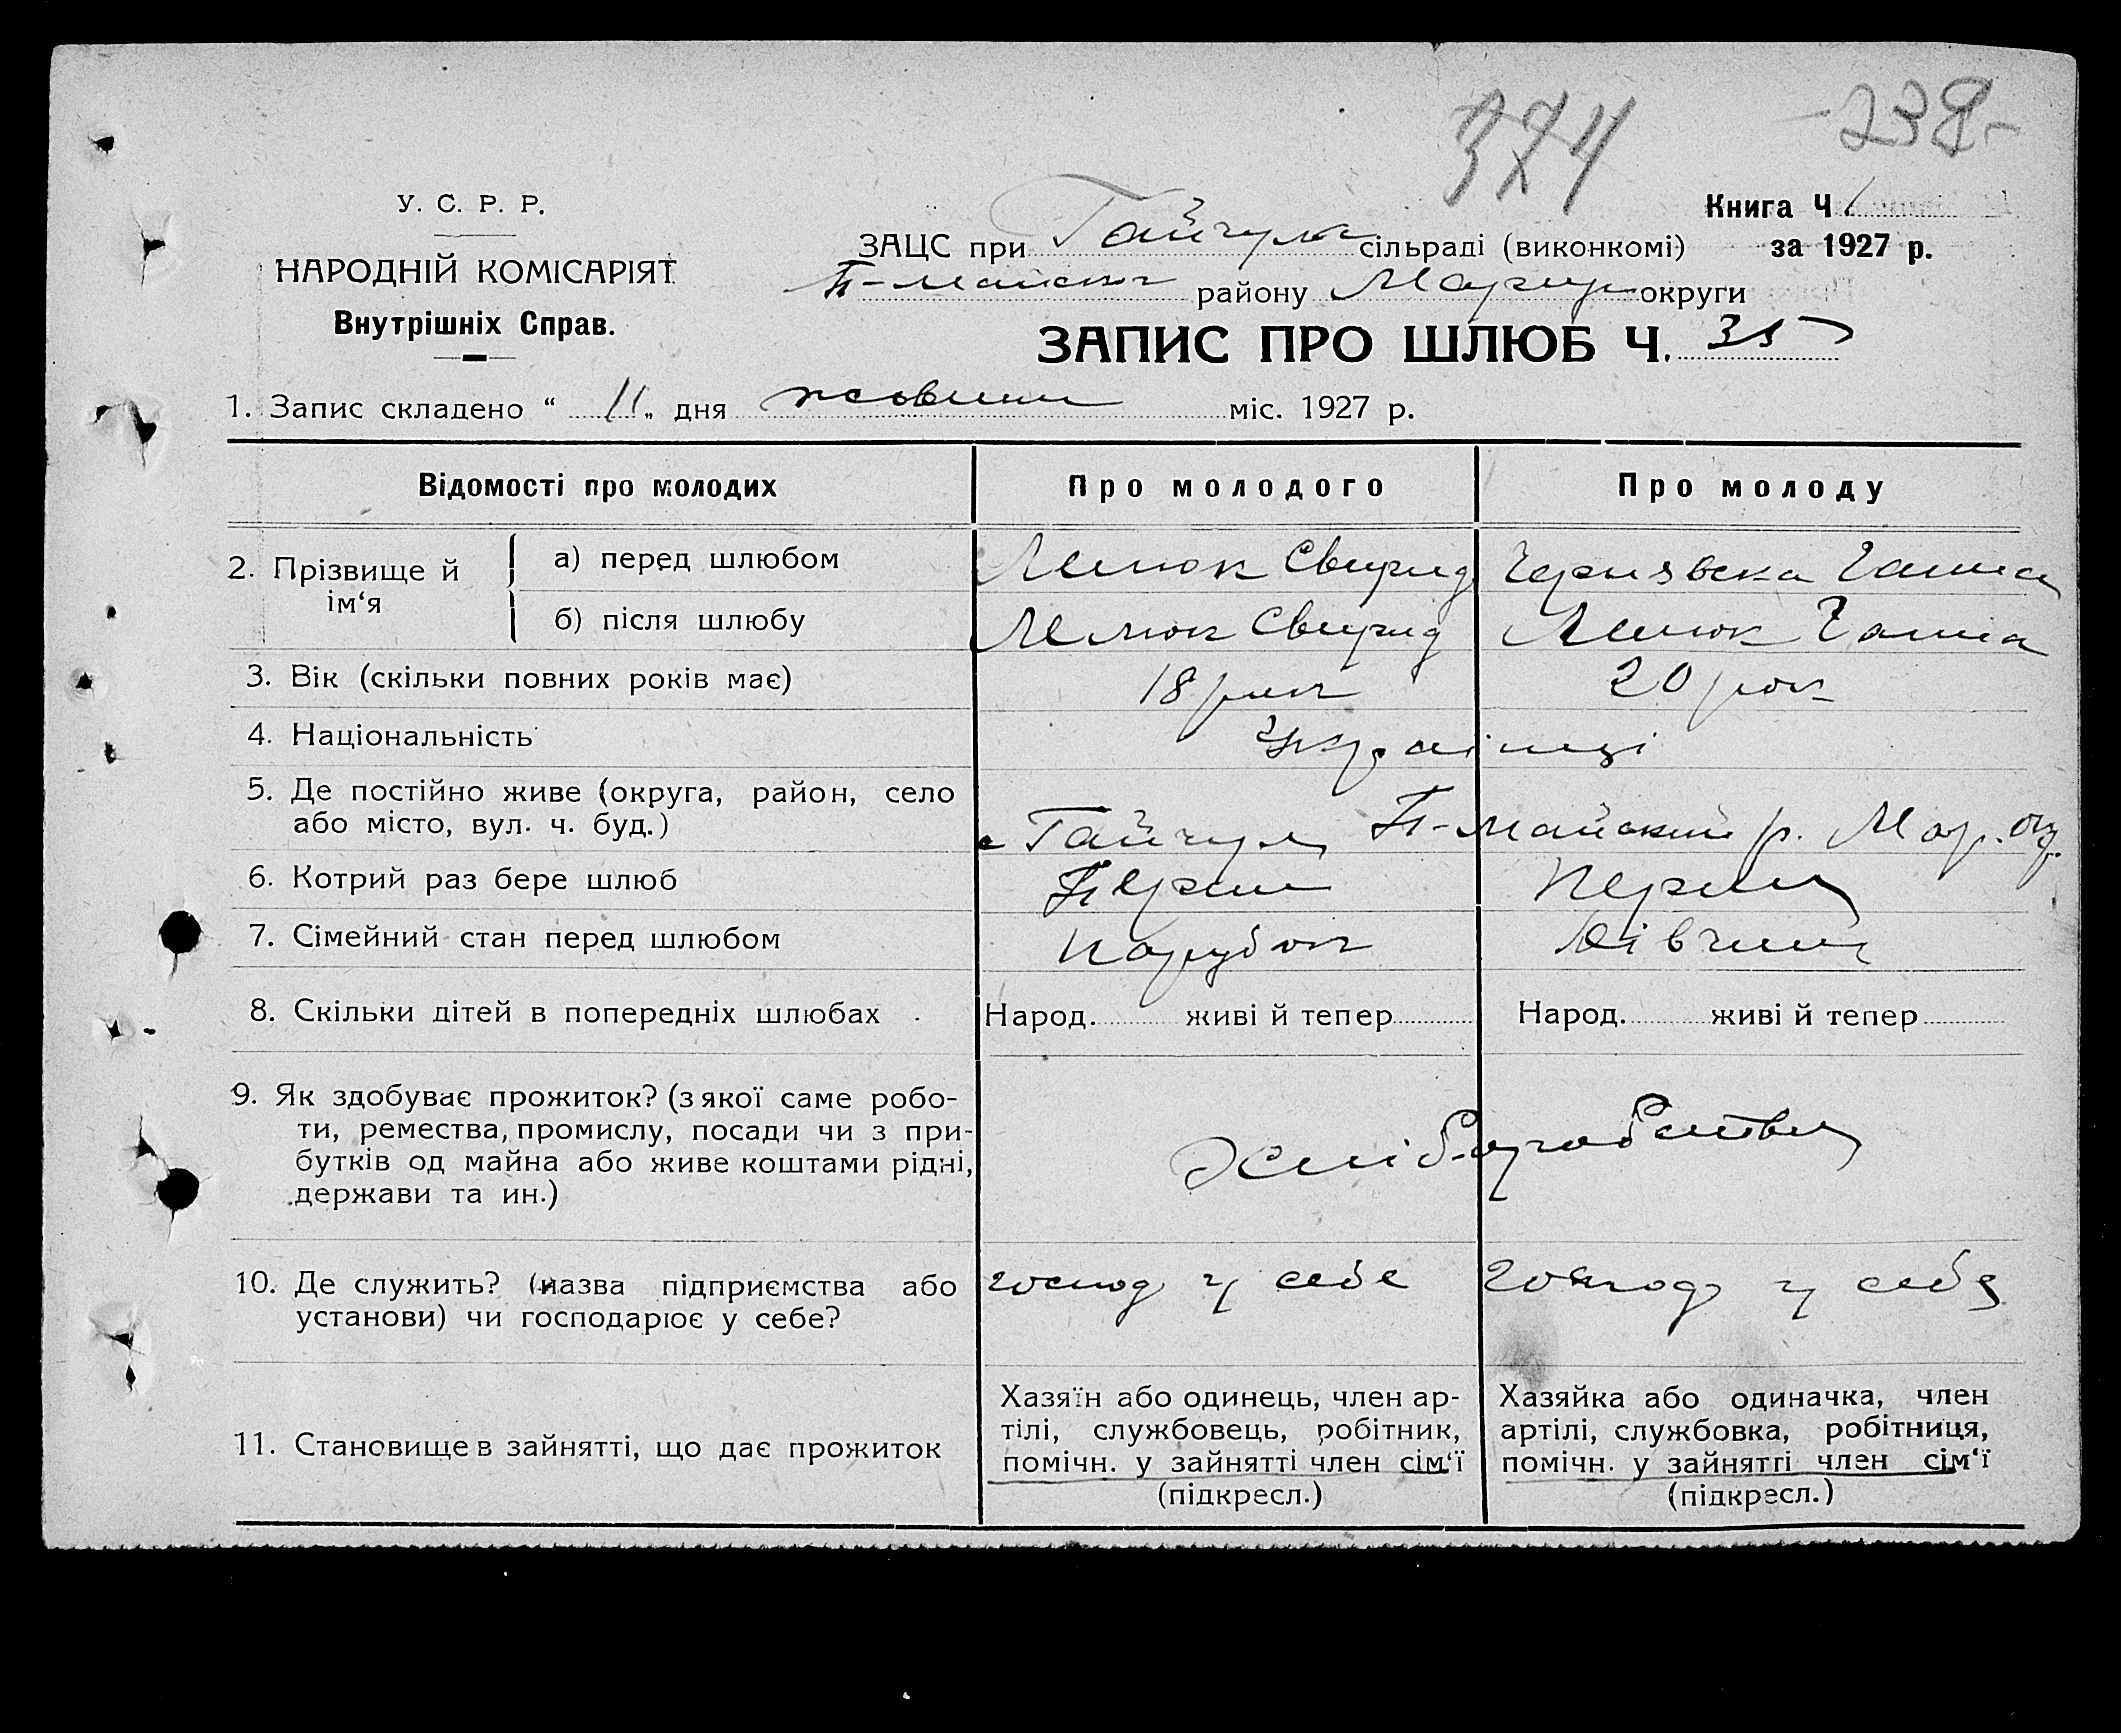 374
-238-
У. С. Р. Р.
НАРОДНІЙ КОМІСАРІЯТ
Внутрішніх Справ.
Книга Ч. 1
за 1927 р.
ЗАЦС при Гайчул сільраді (виконкомі)
П-Майськ району Маріуп округи
ЗАПИС ПРО ШЛЮБ Ч. 35
1. Запис складено “ 11 „ дня жовтня міс. 1927 р.
Відомості про молодих
Про молодого
Про молоду
2. Прізвище й ім‘я
а) перед шлюбом
Свирид
Чернявська Ганна
б) після шлюбу
Свирид
Ганна
3. Вік (скільки повних років має)
18 рок
20 рок
4. Національність
Українці
5. Де постійно живе (округа, район, село
або місто, вул. ч. буд.)
с Гайчул П-Майський р. Мар. ок.
6. Котрий раз бере шлюб
Перши
Перши
7. Сімейний стан перед шлюбом
Парубок
Дівчина
8. Скільки дітей в попередніх шлюбах
Народ. живі й тепер
Народ. живі й тепер
9. Як здобуває прожиток? (з якої саме робо-
ти, ремества, промислу, посади чи з при-
бутків од майна або живе коштами рідні,
держави та ин.)
Хліборобство
10. Де служить? (назва підприємства або
установи) чи господарює у себе?
господ у себе
господ у себе
11. Становище в зайнятті, що дає прожиток
Хазяїн або одинець, член ар-
тілі, службовець, робітник,
помічн. у зайнятті член сім‘ї
(підкресл.)
Хазяйка або одиначка, член
артілі, службовка, робітниця,
помічн. у зайнятті член сім‘ї
(підкресл.)